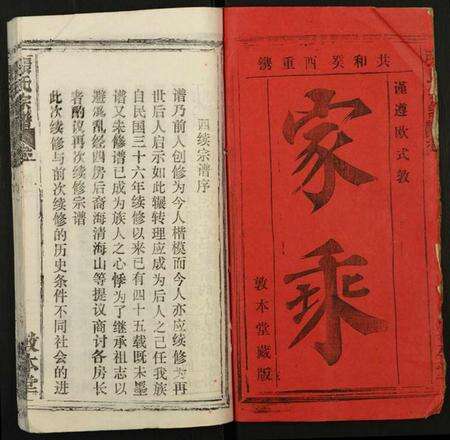 共和癸酉重镌
谨遵欧式教
家乘
敦本堂藏版
四续宗谱序
谱乃前人创修为今人楷模而今人亦应续修为再
世后人启示如此辗转理应成为后人之己任我族
自民国三十六年续修以来已有四十五载既未墨
谱又未修谱已成为族人之心悸为了继承祖志以
避混乱经四房后裔海清海山等提议商讨各房长
者酌议再次续修宗谱
此次续修与前次续修的历史条件不同社会的进
敦本堂